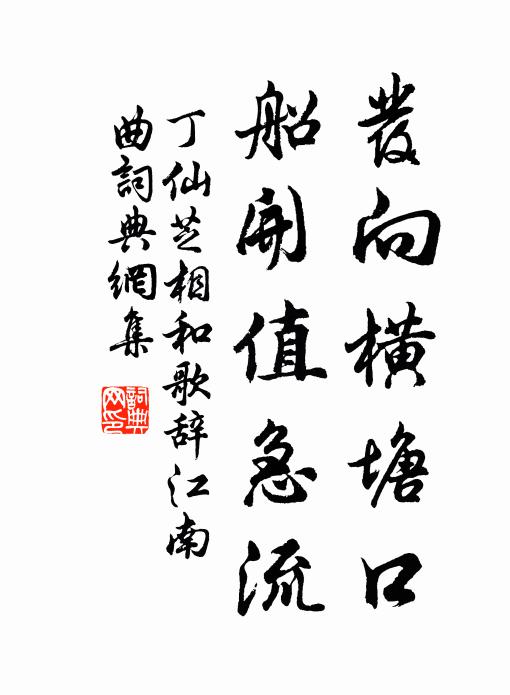 發向橫塘口
船開值急流
丁仙芝相和歌辞江南
曲詞典網集
詞典
网印